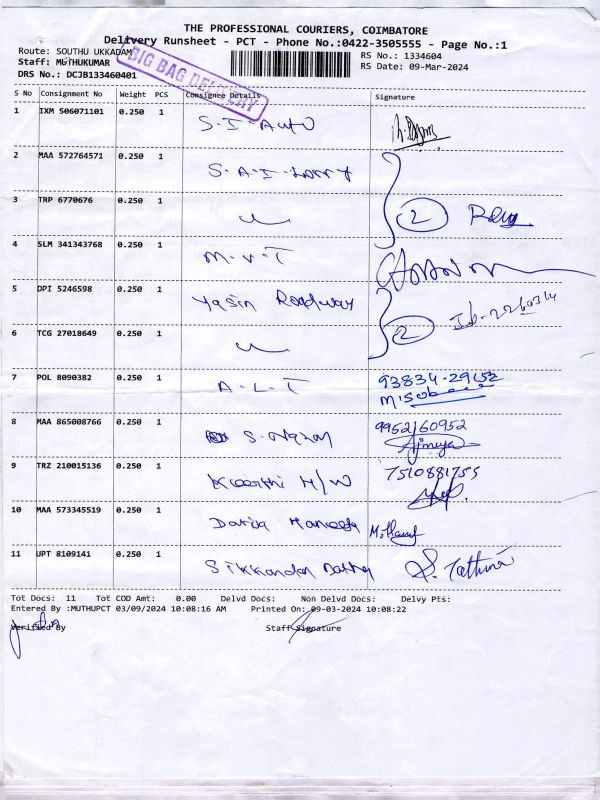 THE PROFESSIONAL COURIERS, COIMBATORE
Delivery Runsheet - PCT - Phone No.:0422-3505555 - Page No.:1
Route: SOUTHU UKKADAM
RS No.: 1334604
Staff: MUTHUKUMAR
RS Date: 09-Mar-2024
DRS No.: DCJB133460401
BIG BAG DELIVERY
S No Consignment No Weight PCS Consignee Details Signature
1 IXM 506071101 0.250 1 S.I-Auto
2 MAA 572764571 0.250 1 S.A.I-Lorry
3 TRP 6770676 0.250 1 2
4 SLM 341343768 0.250 1 M.V.T
5 DPI 5246598 0.250 1 Yasin Roadway
6 TCG 27018649 0.250 1 2
7 POL 8090382 0.250 1 A.L.T 93834-29652
8 MAA 865008766 0.250 1 9952160952
9 TRZ 210015136 0.250 1 Keerthi H/W 7510881755
10 MAA 573345519 0.250 1
11 UPT 8109141 0.250 1 Sikkandar
Tot Docs: 11 Tot COD Amt: 0.00 Delvd Docs: Non Delvd Docs: Delvy Pts:
Entered By :MUTHUPCT 03/09/2024 10:08:16 AM Printed On: 09-03-2024 10:08:22
Verified By Staff Signature